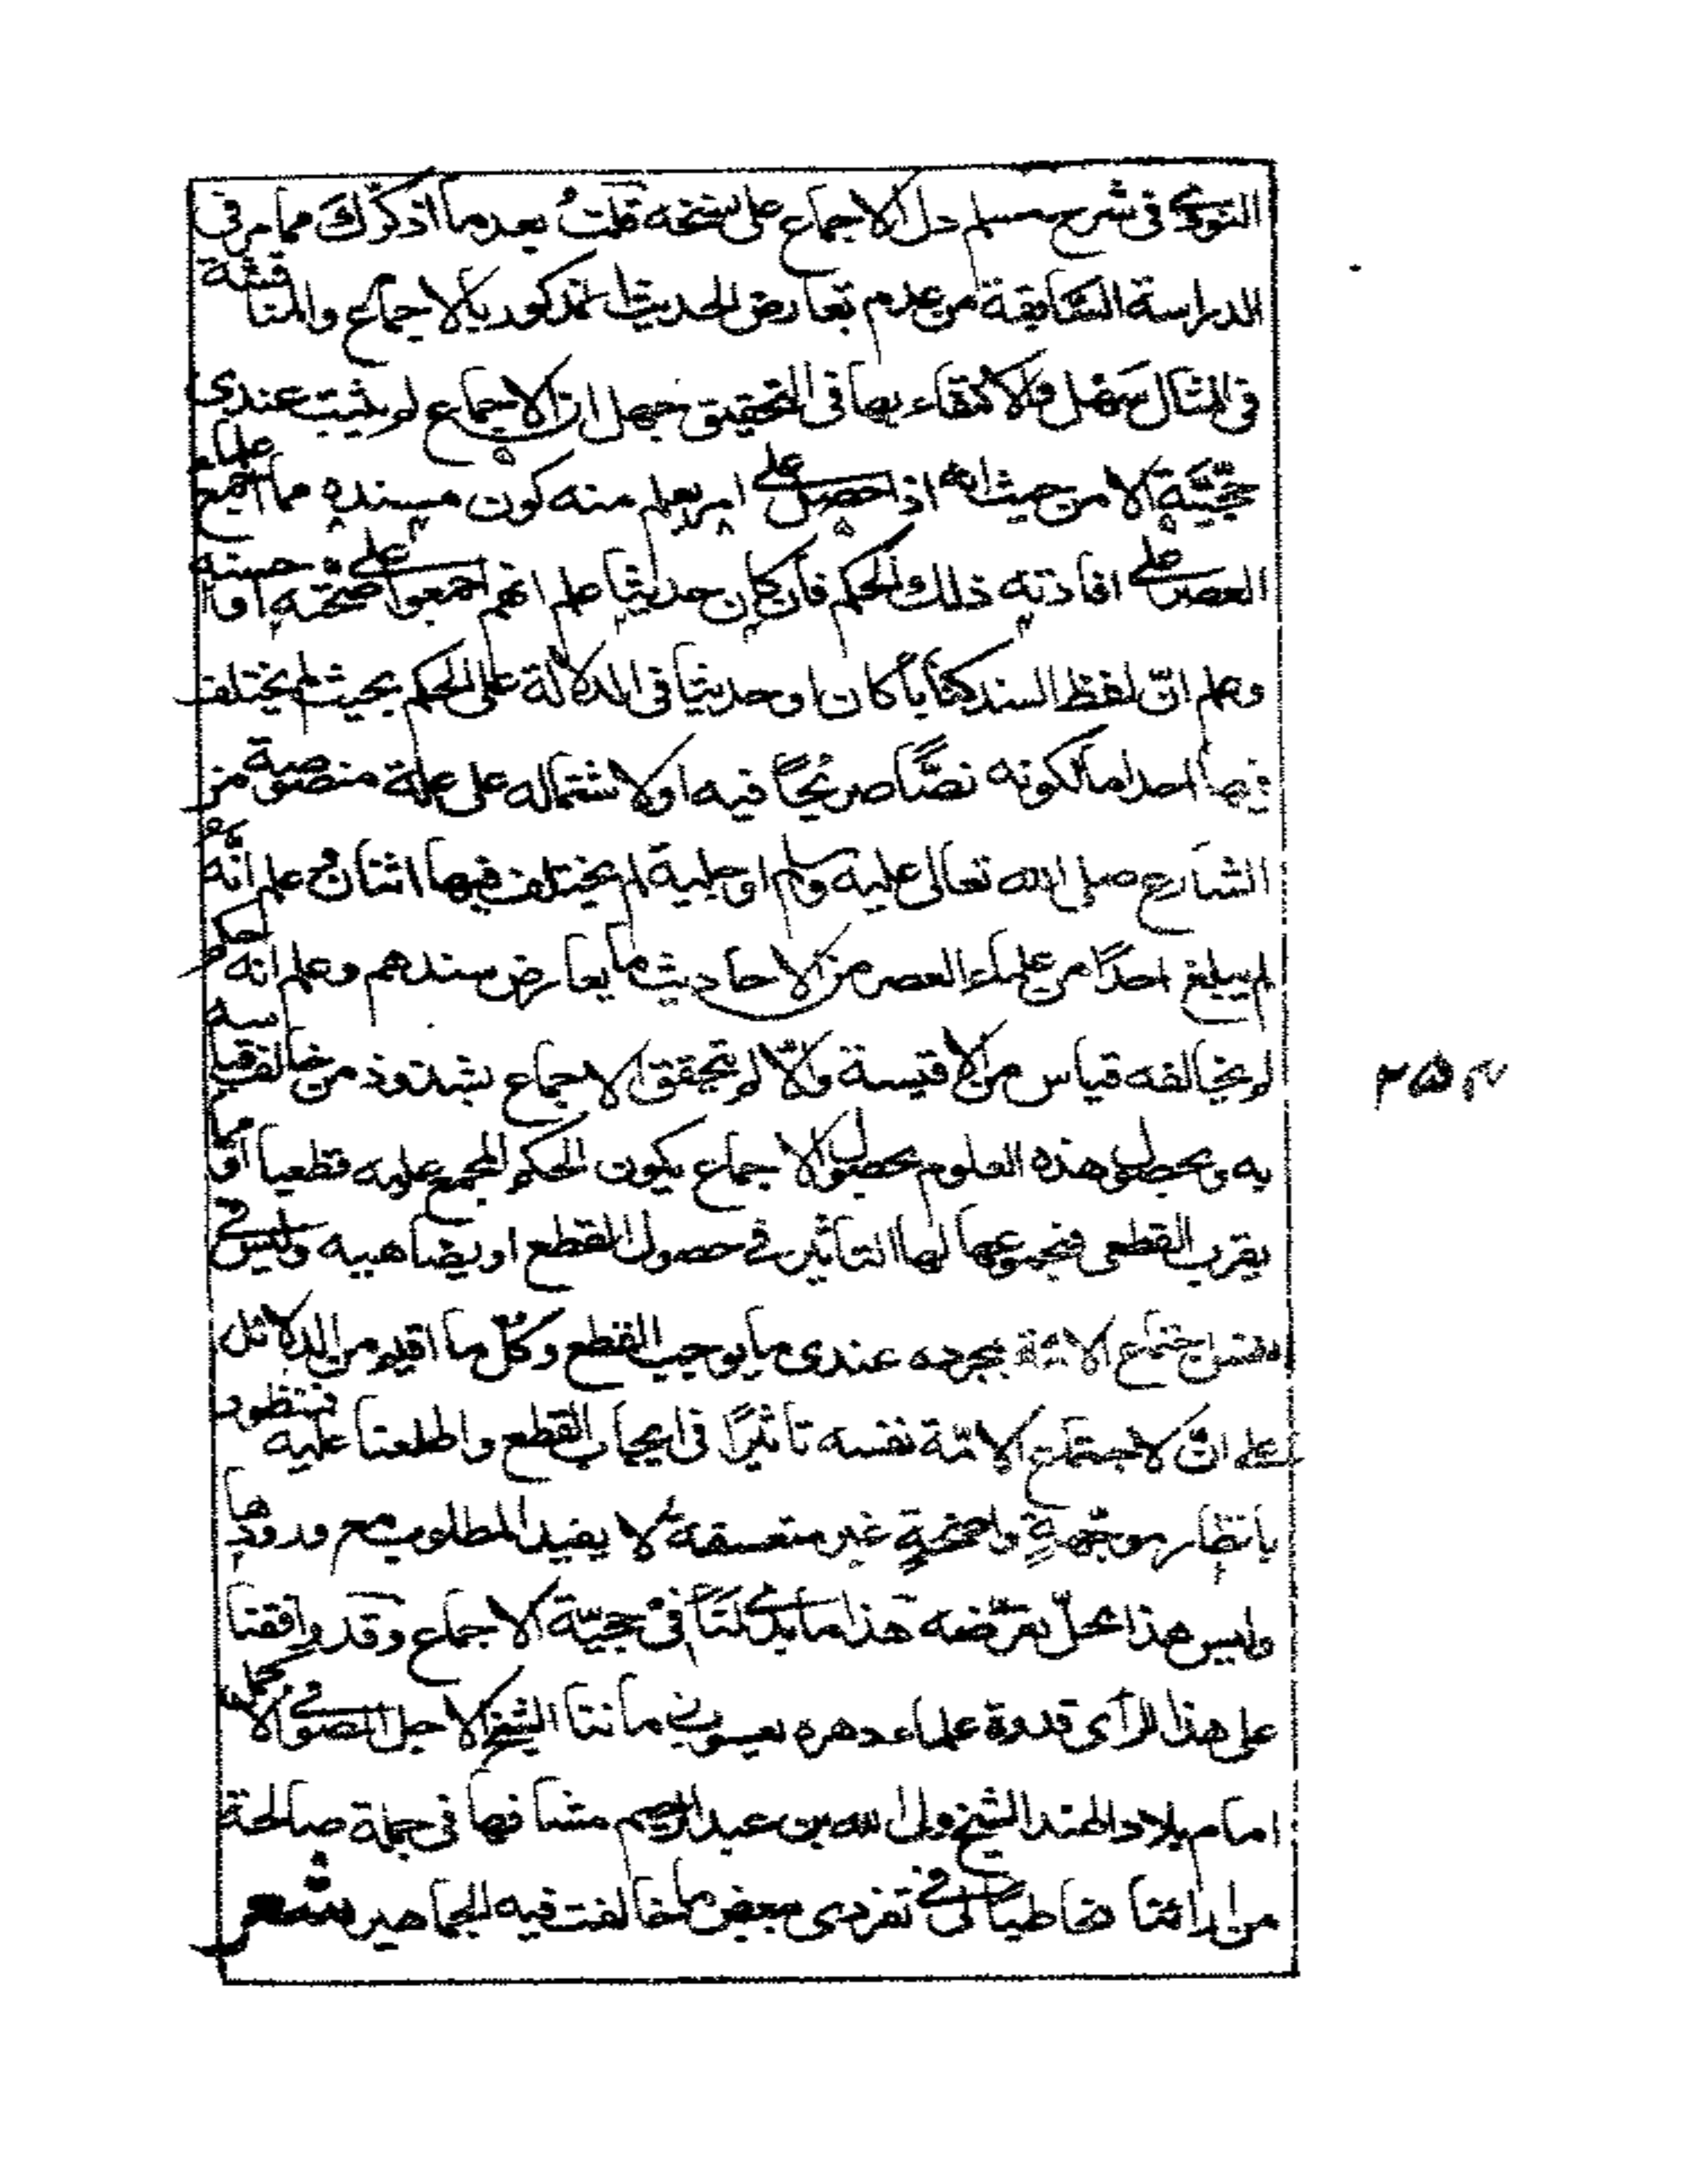 النووي في شرح مسلم دل الاجماع على نسخه قلتُ بعد ما اذكرك مما مر في
الدراسة السّابقة من عدم تعارض الحديث المذكور بالاجماع والمناقشة
في المثال سَهْل والاكتفاء بها في التحقيق جهل ان الاجماع لم يثبت عندي
حجّيّته الا من حيث انه اذا حصل على امر يعلم منه كون مسنده مما اجمع علماء
العصر على افادته ذلك الحكم فان كان حديثا علم انهم اجمعوا على صحّته او حسنه
وعلم انّ لفظ السند كتاباً كان او حديثا في الدلالة على الحكم بحيث لم يختلف
فيها احد اما لكونه نصًّا صريحًا فيه او لاشتماله على علة منصوصة من
الشارع صلى الله تعالى عليه وسلم او جلية لم يختلف فيها اثنان وعلم انّه
لم يبلغ احدًا من علماء العصر من الاحاديث ما يعارض سندهم وعلم انه
لم يخالفه قياس من الاقيسة والّا لم يتحقق الاجماع بشذوذ من خالف قياسه
به وبحصول هذه العلوم بحصول الاجماع يكون الحكم المجمع عليه قطعيا او مما
يقرب القطعى فمجموعها لها التأثير في حصول القطع او يضاهيه وليس في
نفس اجتماع الامّة بمجرده عندى ما يوجب القطع وكلّ ما اقيم من الدلائل
على انّ لاجتماع الامّة نفسه تاثيرًا في ايجاب القطع واطلعنا عليه منظور
بانظار موجّهةٍ واضحةٍ غير متعسفة لا يفيد المطلوب مع ورودها
وليس هذا محلّ تعرّضه هذا ما بدى لنا في حجيّة الاجماع وقد وافقنا
على هذا الرأى قدوة علماء دهره يعسوب ماننا الشيخ الاجل الصوفي الاكمل
امام بلاد الهند الشيخ ولي الله بن عبد الرحيم مشافها في جملة صالحة
من ارائنا مخاطبا لى في تفردى ببعض ما خالفت فيه الجماهير شعر
۲۵۳